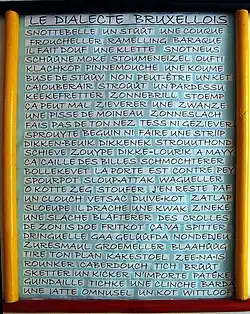 LE DIALECTE BRUXELLOIS
SNOTTEBELLE UN STÜÜT UNE COUQUE
FROUCHELER RAMELLING BARAQUE
IL FAIT DOUF UNE KLETTE SNOTNEUS
SCHÜÜNE MOKE STOUMENEIZEL OUFTI
KLACHKOP PINNEMOUCHE UNE KOUME
BUSE DE STÜÜV NON PEUT-ÊTRE UN KET
CAJOUBERAIR STROÜÜT UN PARDESSU
KEEKEFRETTER ZONNEBRILL STOEMP
ÇA PEUT MAL ZIEVERER UNE ZWANZE
UNE PISSE DE MOINEAU ZONNESLACH
FAIS PAS DE TON NEZ TESS NI GEZIEVER
SPROUYTE BEGUIN NI FAIRE UNE STRIIP
KIKKEN-BEUIK DIKKENEK STROUUTHOND
SCHIEVE ZOUYPE DIKKE-LOURIK AMAYY
ÇA CAILLE DES BILLES SCHMOCHTERER
BOLLEKEVET LA PORTE EST CONTRE PEY
SPOURPOT SLOURPATAK WAGUELER
O KOTTE ZEG STOUFER J'EN RESTE PAF
UN CLOUCH VETSAC DUVE-KOT ZATLAP
SLOUPE IL DRACHE UNE KWAK ZINEKE
UNE SLACHE BLAFTERER DES CROLLES
DE ZON IS DOE FRITKOT ÇA VA SPITTER
DRINGUELLE GAA GELÜÜFDA NONDEDJEU
ZUURESMAUL GROEMELLER BLAAHÜÜG
TIRE TON PLAN KAKESTOEL ZEE-NA-IS
ROUNKER CABERDOUCH TICH BRÜÜT
SKETTER UN KICKER N'IMPORTE PATEKE
GUINDAILLE TICHKE UNE CLINCHE BARDA
UNE LATTE OMNUSEL UN KOT WITTLOOF